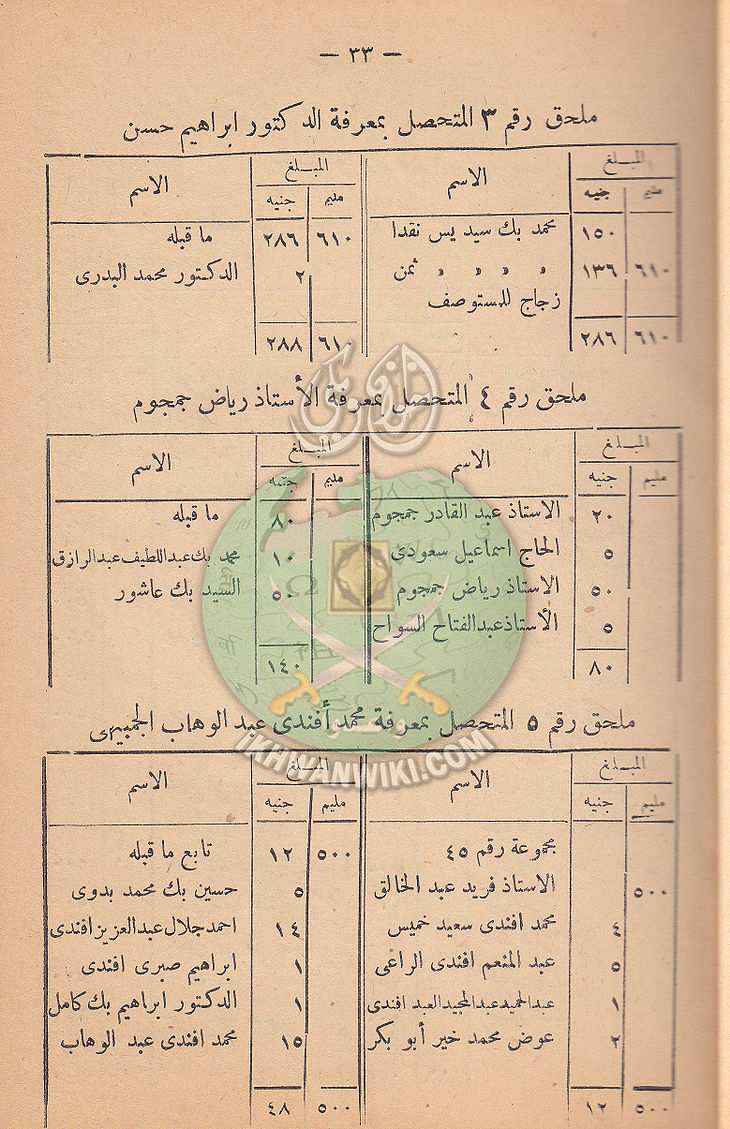 — ٣٣ —
ملحق رقم ٣ المتحصل بمعرفة الدكتور ابراهيم حسن
المبلغ الاسم المبلغ الاسم
مليم جنيه مليم جنيه
١٥٠ محمد بك سيد يس نقدا ٦١٠ ٢٨٦ ما قبله
٦١٠ ١٣٦ » » » » ثمن ٢ الدكتور محمد البدرى
زجاج للمستوصف
٦١٠ ٢٨٦ ٦١٠ ٢٨٨
ملحق رقم ٤ المتحصل بمعرفة الأستاذ رياض جمجوم
المبلغ الاسم المبلغ الاسم
مليم جنيه مليم جنيه
٢٠ الاستاذ عبد القادر جمجوم ٨٠ ما قبله
٥ الحاج اسماعيل سعودى ١٠ محمد بك عبد اللطيف عبد الرازق
٥٠ الاستاذ رياض جمجوم ٥٠ السيد بك عاشور
٥ الأستاذ عبد الفتاح السواح
٨٠ ١٤٠
ملحق رقم ٥ المتحصل بمعرفة محمد أفندى عبد الوهاب الجمبيرى
IKHWANWIKI.COM
المبلغ الاسم المبلغ الاسم
مليم جنيه مليم جنيه
مجموعة رقم ٤٥ ٥٠٠ ١٢ تابع ما قبله
٥٠٠ الاستاذ فريد عبد الخالق ٥ حسين بك محمد بدوى
٤ محمد افندى سعيد خميس ١٤ احمد جلال عبد العزيز افندى
٥ عبد المنعم افندى الراعى ١ ابراهيم صبرى افندى
١ عبد الحميد عبد المجيد العبد افندى ١ الدكتور ابراهيم بك كامل
٢ عوض محمد خير أبو بكر ١٥ محمد افندى عبد الوهاب
٥٠٠ ١٢ ٥٠٠ ٤٨